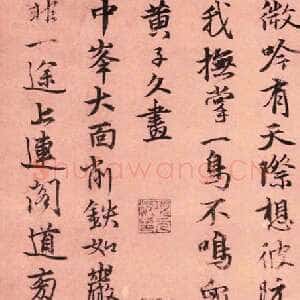 微吟有天際想彼
我撫掌一鳥不鳴
黃子久畫
中峯大面削鉄如巖
一途上連閣道